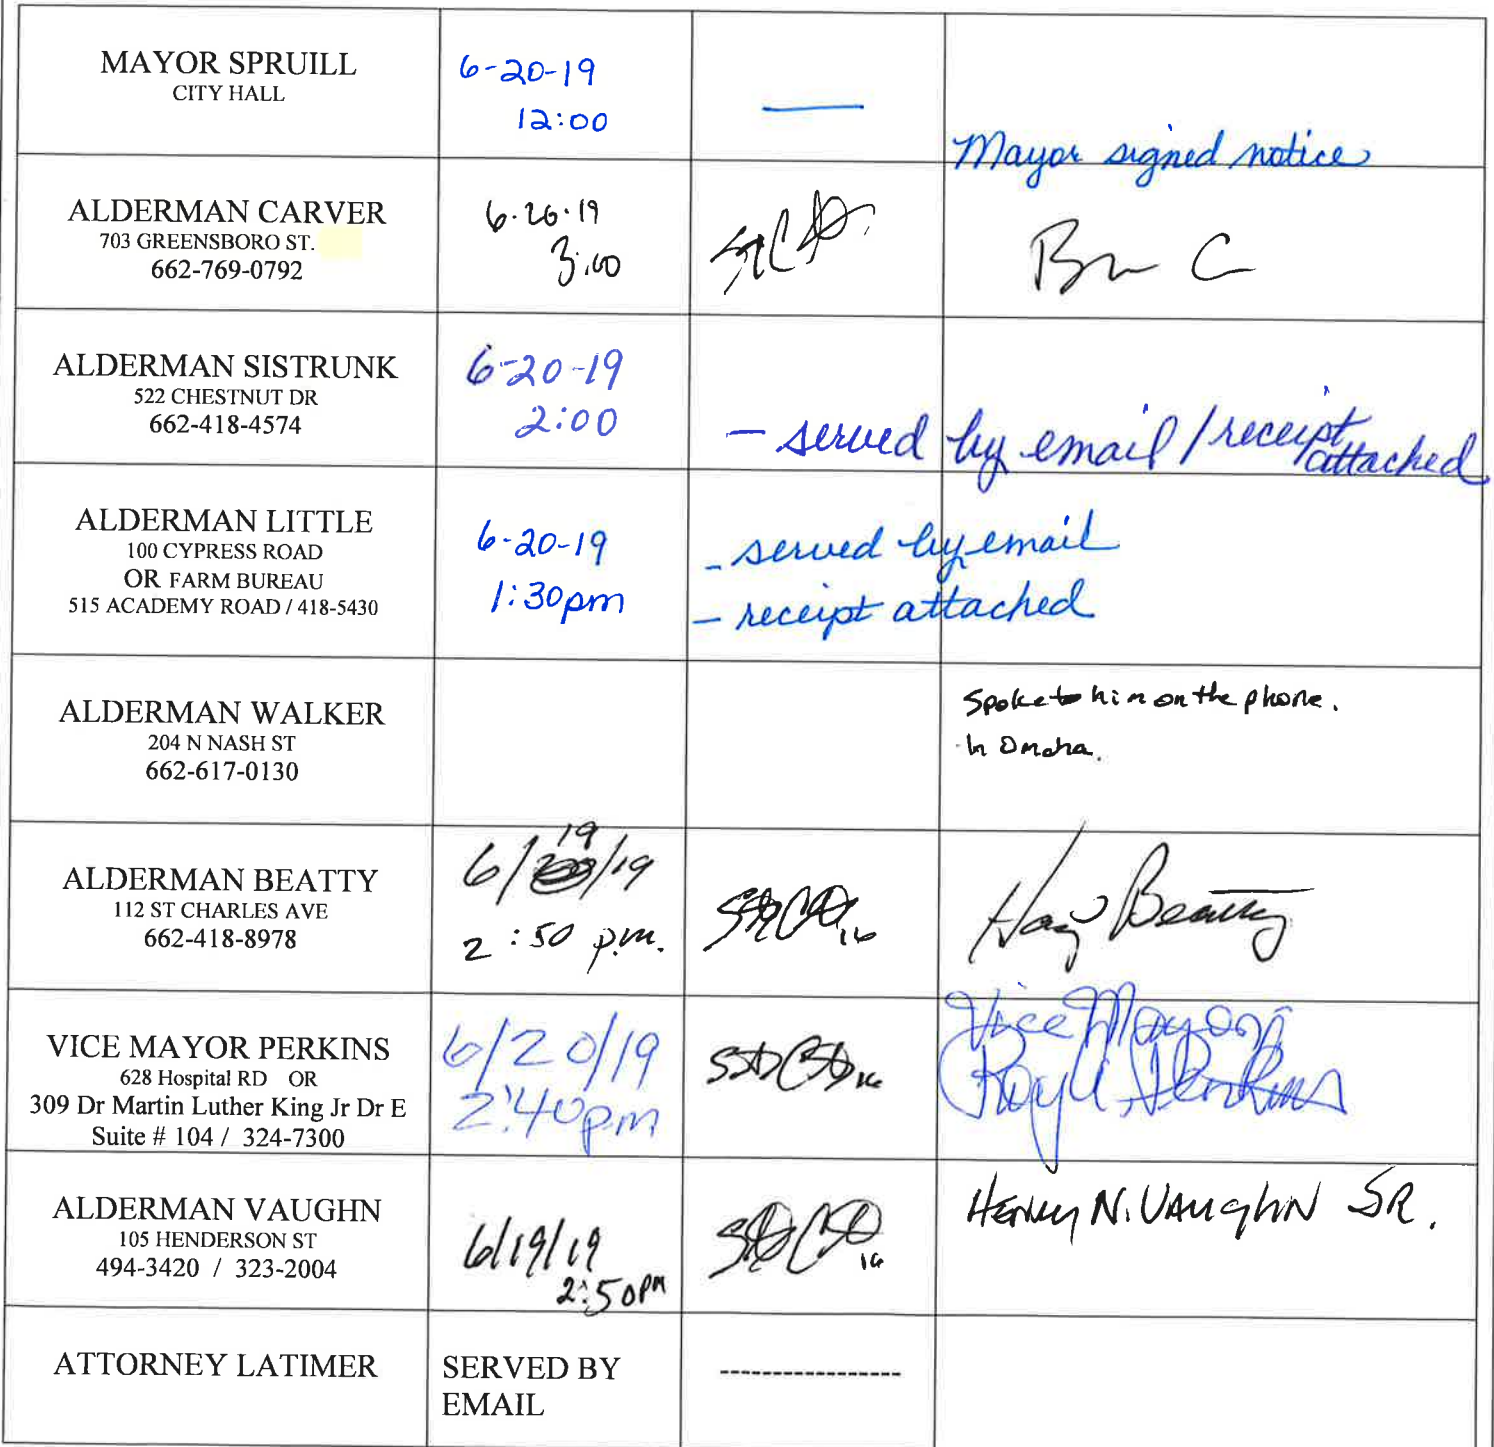 MAYOR SPRUILL
CITY HALL
6-20-19
12:00
Mayor signed notice
ALDERMAN CARVER
703 GREENSBORO ST.
662-769-0792
6.20.19
3:00
ALDERMAN SISTRUNK
522 CHESTNUT DR
662-418-4574
6-20-19
2:00
- served by email / receipt
attached
ALDERMAN LITTLE
100 CYPRESS ROAD
OR FARM BUREAU
515 ACADEMY ROAD / 418-5430
6-20-19
1:30pm
- served by email
- receipt attached
ALDERMAN WALKER
204 N NASH ST
662-617-0130
Spoke to him on the phone.
In Omaha.
ALDERMAN BEATTY
112 ST CHARLES AVE
662-418-8978
19
6/ /19
2:50 p.m.
Beatty
VICE MAYOR PERKINS
628 Hospital RD OR
309 Dr Martin Luther King Jr Dr E
Suite # 104 / 324-7300
6/20/19
2:40pm
Vice Mayor
Perkins
ALDERMAN VAUGHN
105 HENDERSON ST
494-3420 / 323-2004
6/19/19
2:50pm
HENRY N. VAUGHN SR.
ATTORNEY LATIMER
SERVED BY
EMAIL
------------------